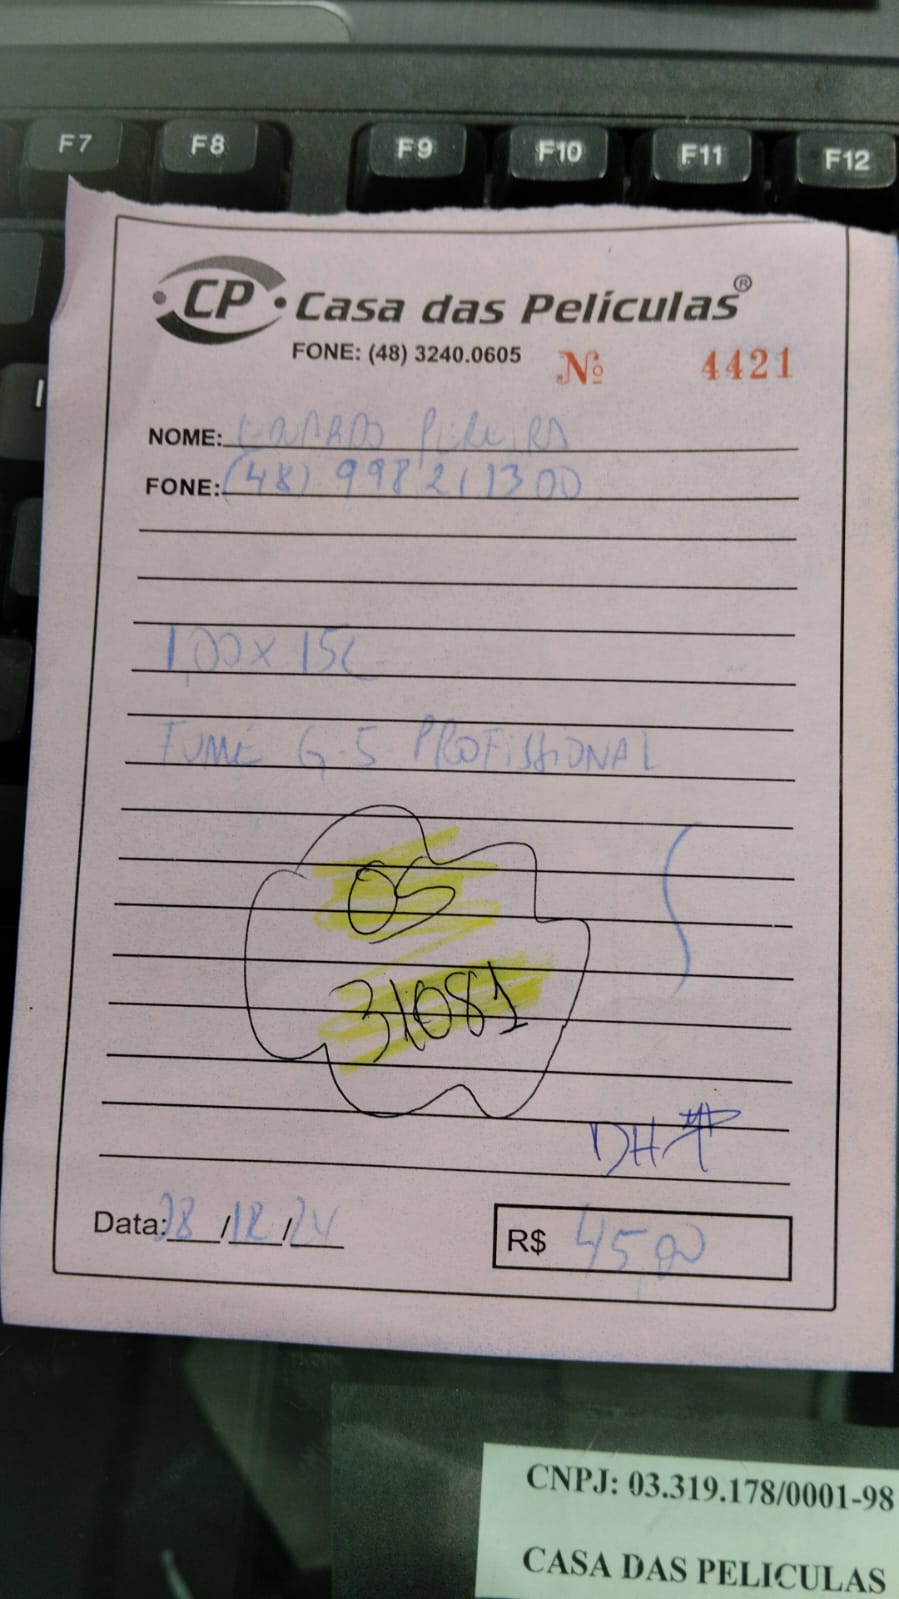 F7 F8 F9 F10 F11 F12
CP Casa das Películas®
FONE: (48) 3240.0605 Nº 4421
NOME: EDUARDO PEREIRA
FONE: (48) 998211300
1,00 x 15C
FUMÊ G-5 PROFISSIONAL
OS
31081
DH
Data: 28/12/24 R$ 45,00
CNPJ: 03.319.178/0001-98
CASA DAS PELICULAS